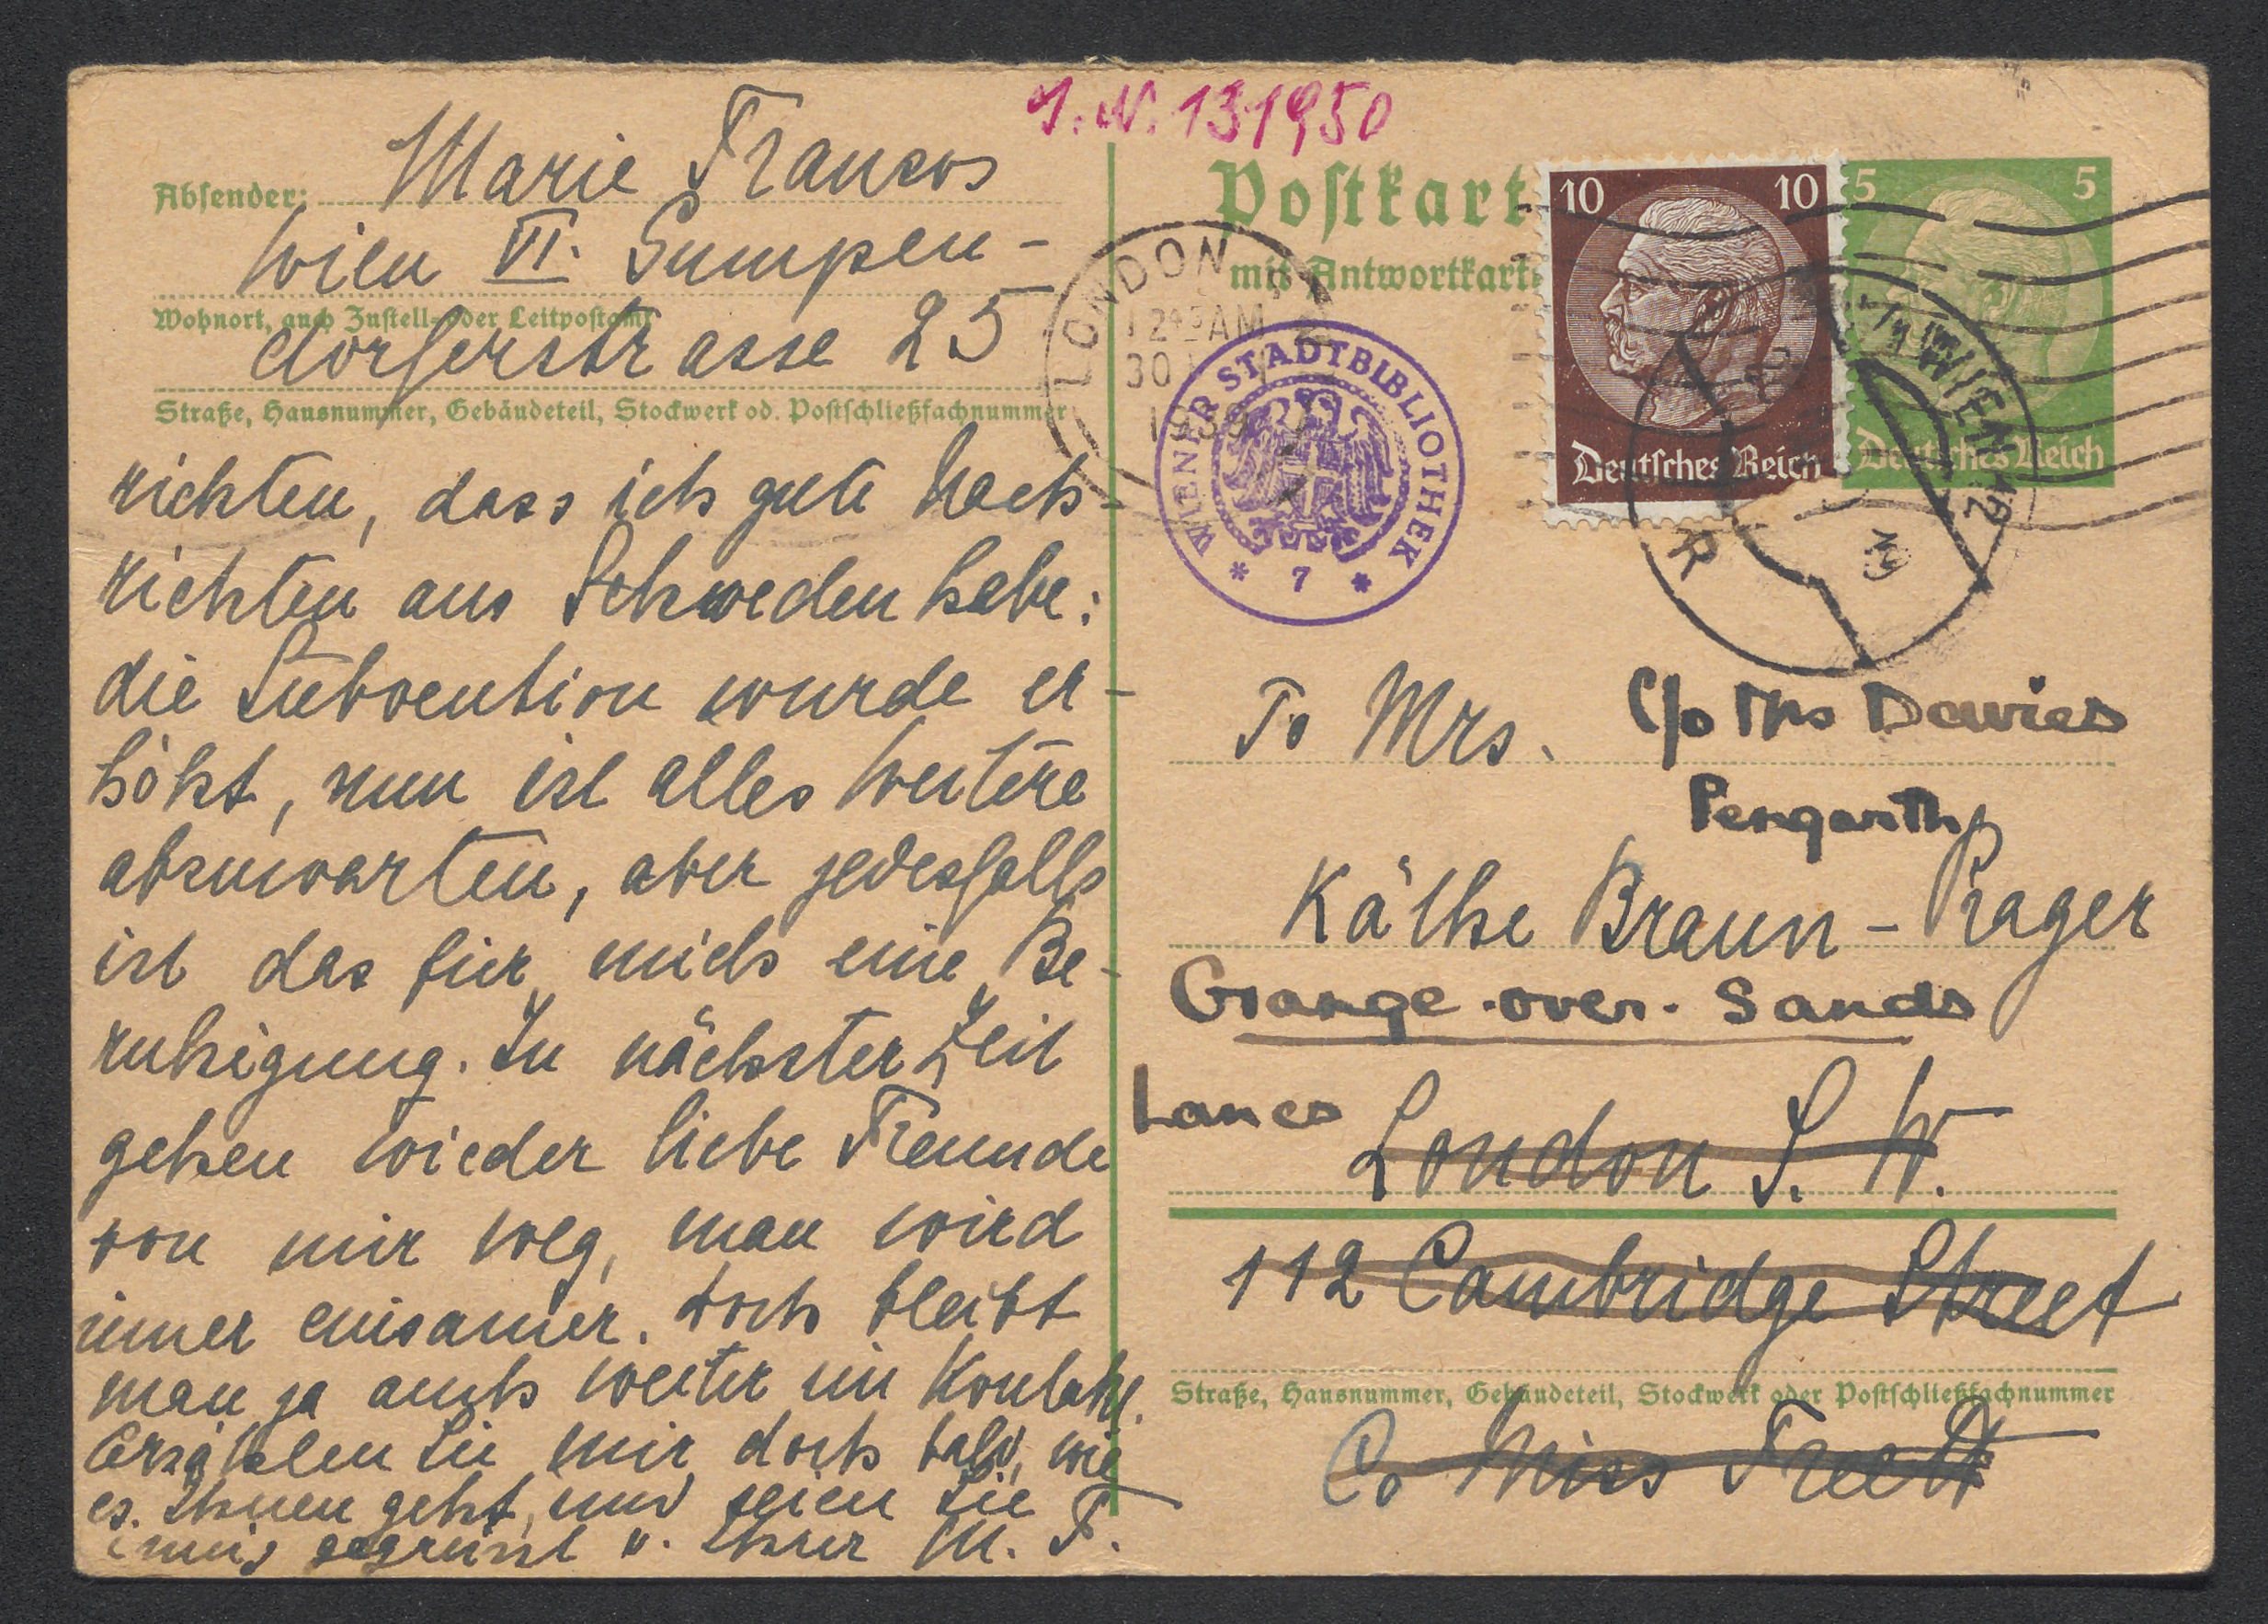 I. N. 131950
Absender: Marie Franzos
Wien VI. Gumpen-
Wohnort, auch Zustell- oder Leitpostamt
dorferstrasse 25
Straße, Hausnummer, Gebäudeteil, Stockwerk od. Postschließfachnummer
richten, dass ich gute Nach-
richten aus Schweden habe:
die Subvention wurde er-
höht, nun ist alles Weitere
abzuwarten, aber jedesfalls
ist das für mich eine Be-
ruhigung. In nächster Zeit
gehen wieder liebe Freunde
von mir weg, man wird
immer einsamer. Doch bleibt
man ja auch weiter in Kontakt.
Erzählen Sie mir doch bald, wie
es Ihnen geht, und seien Sie
innig gegrüsst v. Ihrer M. F.
Postkart
mit Antwortkart
10 10
Deutsches Reich
5 5
Deutsches Reich
LONDON
12 45 AM
30
1939
WIENER STADTBIBLIOTHEK
* 7 *
WIEN
To Mrs. C/o Mrs Davies
Pengarth
Käthe Braun-Prager
Grange-over-Sands
Lancs
London S. W.
112 Cambridge Street
Straße, Hausnummer, Gebäudeteil, Stockwerk oder Postschließfachnummer
Co Miss